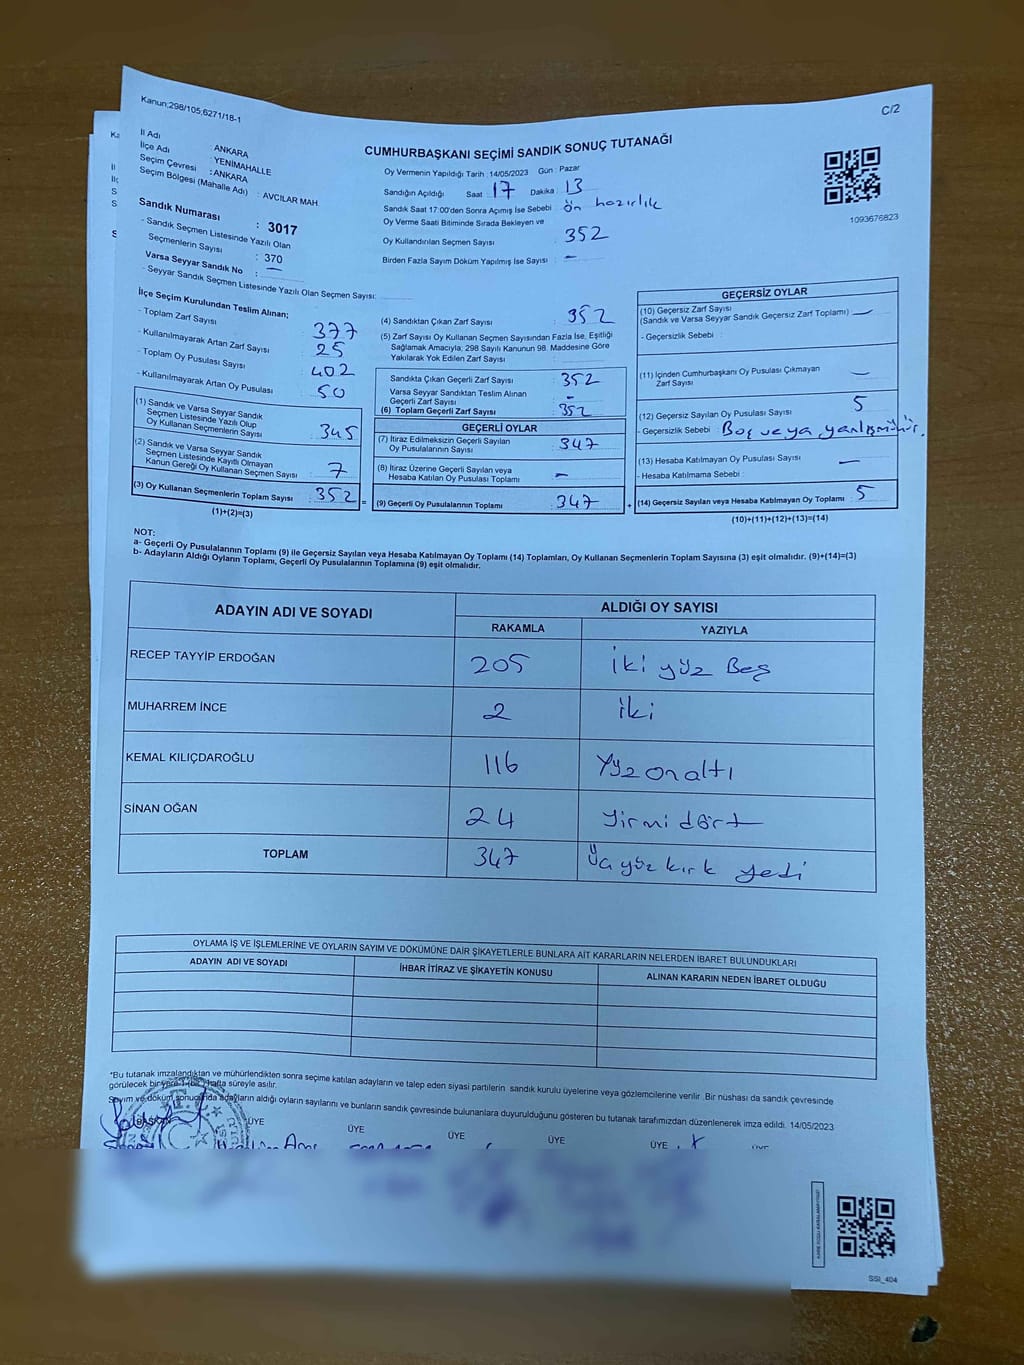 Kanun;298/105;6271/18-1
C/2
CUMHURBAŞKANI SEÇİMİ SANDIK SONUÇ TUTANAĞI
İl Adı : ANKARA
İlçe Adı : YENİMAHALLE
Seçim Çevresi : ANKARA
Seçim Bölgesi (Mahalle Adı) : AVCILAR MAH.
Sandık Numarası : 3017
- Sandık Seçmen Listesinde Yazılı Olan
Seçmenlerin Sayısı : 370
Varsa Seyyar Sandık No : —
- Seyyar Sandık Seçmen Listesinde Yazılı Olan Seçmen Sayısı:
Oy Vermenin Yapıldığı Tarih : 14/05/2023 Gün : Pazar
Sandığın Açıldığı Saat : 17 Dakika : 13
Sandık Saat 17:00'den Sonra Açımış İse Sebebi : Ön hazırlık
Oy Verme Saati Bitiminde Sırada Bekleyen ve
Oy Kullandırılan Seçmen Sayısı : 352
Birden Fazla Sayım Döküm Yapılmış İse Sayısı : —
1093676823
İlçe Seçim Kurulundan Teslim Alınan;
- Toplam Zarf Sayısı : 377
- Kullanılmayarak Artan Zarf Sayısı : 25
- Toplam Oy Pusulası Sayısı : 402
- Kullanılmayarak Artan Oy Pusulası : 50
(1) Sandık ve Varsa Seyyar Sandık
Seçmen Listesinde Yazılı Olup
Oy Kullanan Seçmenlerin Sayısı : 345
(2) Sandık ve Varsa Seyyar Sandık
Seçmen Listesinde Kayıtlı Olmayan
Kanun Gereği Oy Kullanan Seçmen Sayısı : 7
(3) Oy Kullanan Seçmenlerin Toplam Sayısı : 352 =
(1)+(2)=(3)
(4) Sandıktan Çıkan Zarf Sayısı : 352
(5) Zarf Sayısı Oy Kullanan Seçmen Sayısından Fazla İse, Eşitliği
Sağlamak Amacıyla; 298 Sayılı Kanunun 98. Maddesine Göre
Yakılarak Yok Edilen Zarf Sayısı
Sandıkta Çıkan Geçerli Zarf Sayısı : 352
Varsa Seyyar Sandıktan Teslim Alınan
Geçerli Zarf Sayısı : -
(6) Toplam Geçerli Zarf Sayısı : 352
GEÇERLİ OYLAR
(7) İtiraz Edilmeksizin Geçerli Sayılan
Oy Pusulalarının Sayısı : 347
(8) İtiraz Üzerine Geçerli Sayılan veya
Hesaba Katılan Oy Pusulası Toplamı : —
(9) Geçerli Oy Pusulalarının Toplamı : 347 +
GEÇERSİZ OYLAR
(10) Geçersiz Zarf Sayısı
(Sandık ve Varsa Seyyar Sandık Geçersiz Zarf Toplamı) : —
- Geçersizlik Sebebi :
(11) İçinden Cumhurbaşkanı Oy Pusulası Çıkmayan
Zarf Sayısı : —
(12) Geçersiz Sayılan Oy Pusulası Sayısı : 5
- Geçersizlik Sebebi : Boş veya yanlış mühür.
(13) Hesaba Katılmayan Oy Pusulası Sayısı : —
- Hesaba Katılmama Sebebi :
(14) Geçersiz Sayılan veya Hesaba Katılmayan Oy Toplamı : 5
(10)+(11)+(12)+(13)=(14)
NOT:
a- Geçerli Oy Pusulalarının Toplamı (9) ile Geçersiz Sayılan veya Hesaba Katılmayan Oy Toplamı (14) Toplamları, Oy Kullanan Seçmenlerin Toplam Sayısına (3) eşit olmalıdır. (9)+(14)=(3)
b- Adayların Aldığı Oyların Toplamı, Geçerli Oy Pusulalarının Toplamına (9) eşit olmalıdır.
ADAYIN ADI VE SOYADI ALDIĞI OY SAYISI
RAKAMLA YAZIYLA
RECEP TAYYİP ERDOĞAN 205 İki yüz Beş
MUHARREM İNCE 2 İki
KEMAL KILIÇDAROĞLU 116 Yüz on altı
SİNAN OĞAN 24 Yirmi dört
TOPLAM 347 Üç yüz kırk yedi
OYLAMA İŞ VE İŞLEMLERİNE VE OYLARIN SAYIM VE DÖKÜMÜNE DAİR ŞİKAYETLERLE BUNLARA AİT KARARLARIN NELERDEN İBARET BULUNDUKLARI
ADAYIN ADI VE SOYADI İHBAR İTİRAZ VE ŞİKAYETİN KONUSU ALINAN KARARIN NEDEN İBARET OLDUĞU
*Bu tutanak imzalandıktan ve mühürlendikten sonra seçime katılan adayların ve talep eden siyasi partilerin sandık kurulu üyelerine veya gözlemcilerine verilir .Bir nüshası da sandık çevresinde
görülecek bir yere 1 (bir) hafta süreyle asılır.
Sayım ve döküm sonucunda adayların aldığı oyların sayılarını ve bunların sandık çevresinde bulunanlara duyurulduğunu gösteren bu tutanak tarafımızdan düzenlenerek imza edildi. 14/05/2023
BAŞKAN ÜYE ÜYE ÜYE ÜYE ÜYE ÜYE
SSI_404